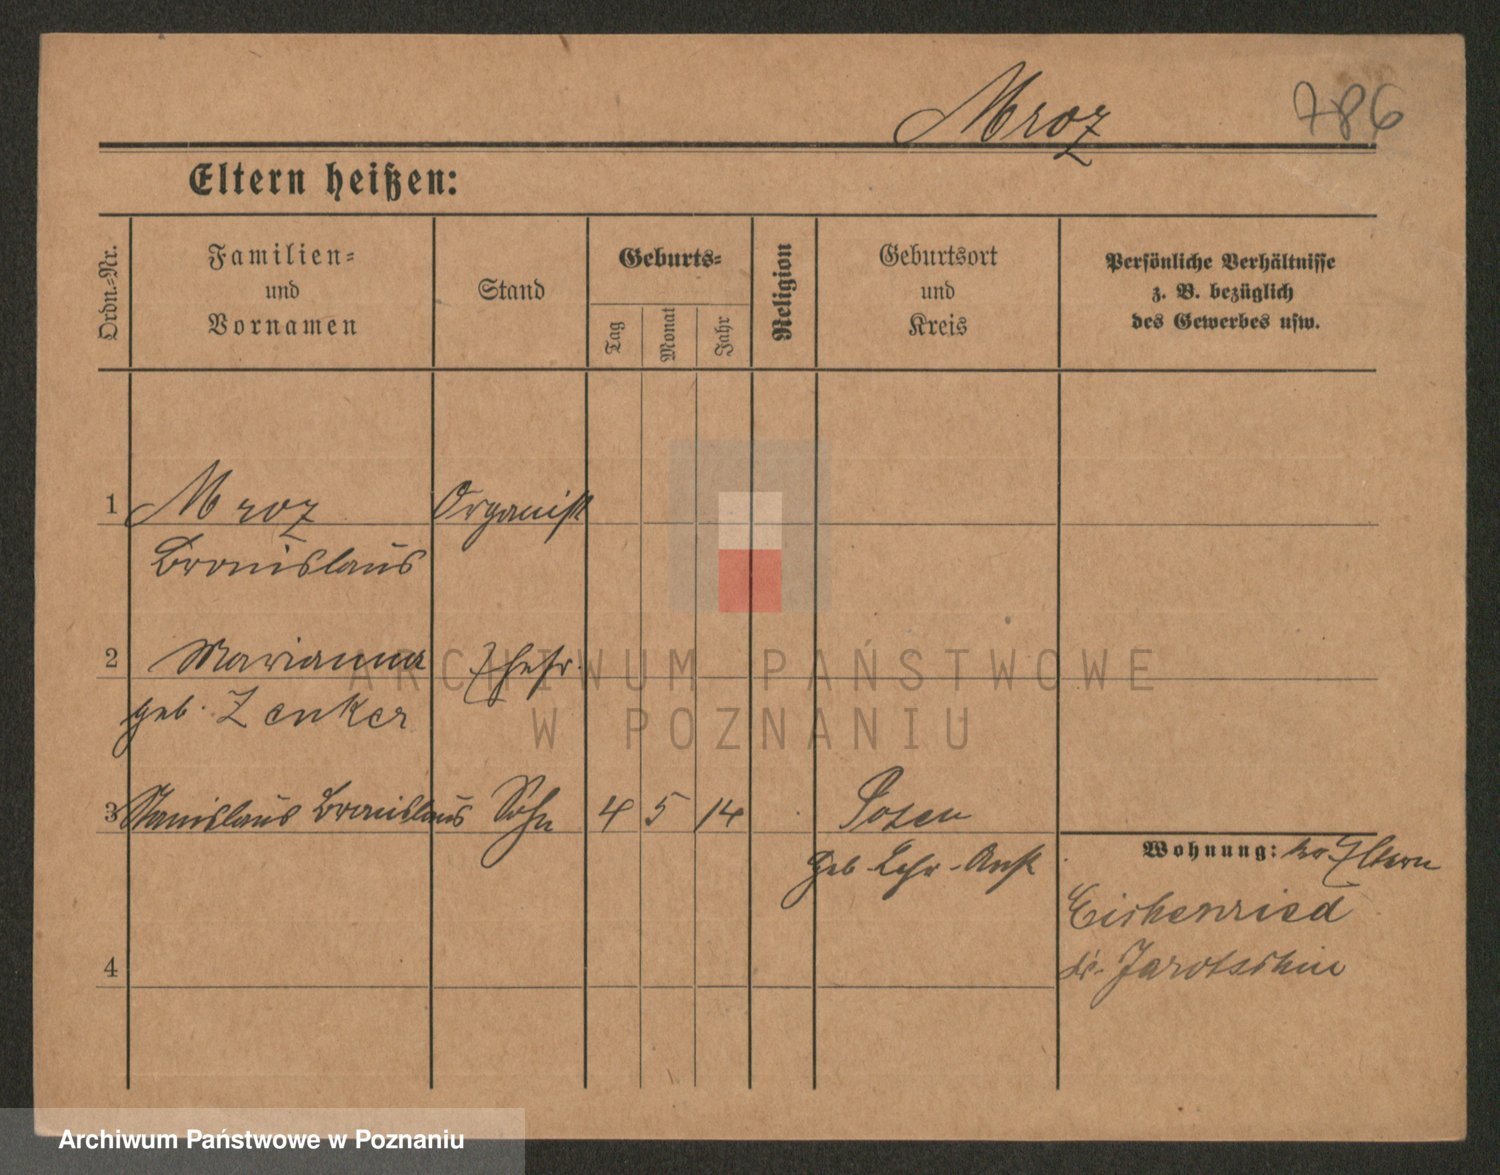 Mroz 786
Eltern heißen:
Ordn.-Nr.
Familien-
und
Vornamen
Stand
Geburts-
Tag
Monat
Jahr
Religion
Geburtsort
und
Kreis
Persönliche Verhältnisse
z. B. bezüglich
des Gewerbes usw.
1 Mroz Organist
Bronislaus
2 Marianna Ehefr.
geb. Zenker
3 Stanislaus Bronislaus Sohn 4 5 14 Posen
Geb-Lehr-Anst
Wohnung: Eltern
Jarotschin
4
ARCHIWUM PAŃSTWOWE
W POZNANIU
Archiwum Państwowe w Poznaniu